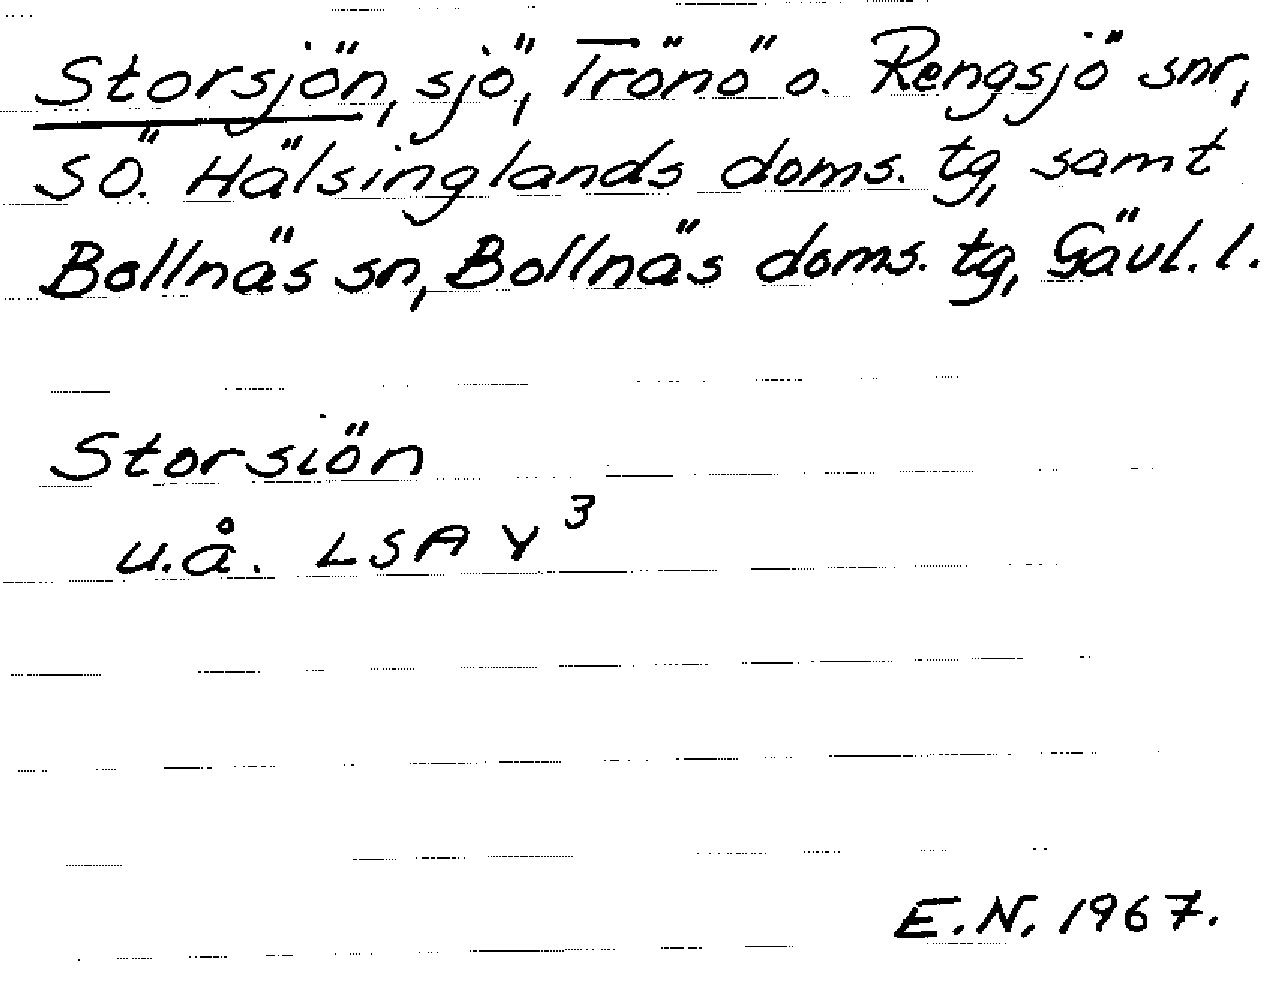 Storsjön, sjö, Trönö o. Rengsjö snr,
SÖ. Hälsinglands doms. tg, samt
Bollnäs sn, Bollnäs doms. tg, Gävl. l.
Storsiön
u.å. LSA Y³
E.N. 1967.